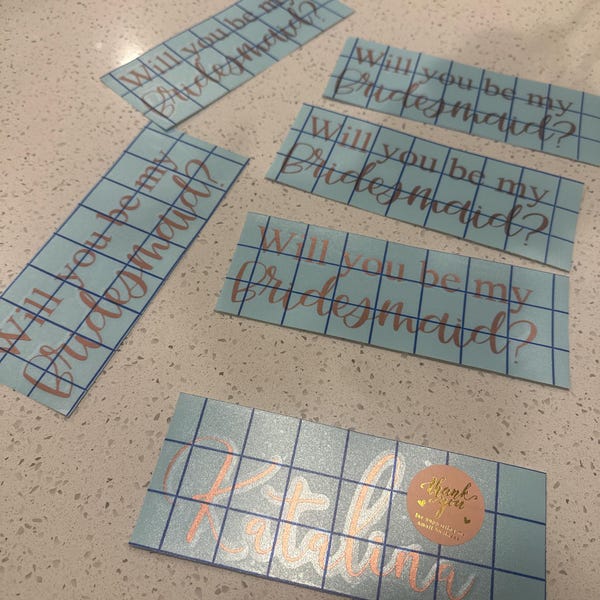 Will you be my
bridesmaid?
Will you be my
bridesmaid?
Will you be my
bridesmaid?
Will you be my
bridesmaid?
Will you be my
bridesmaid?
Katalina
thank
you